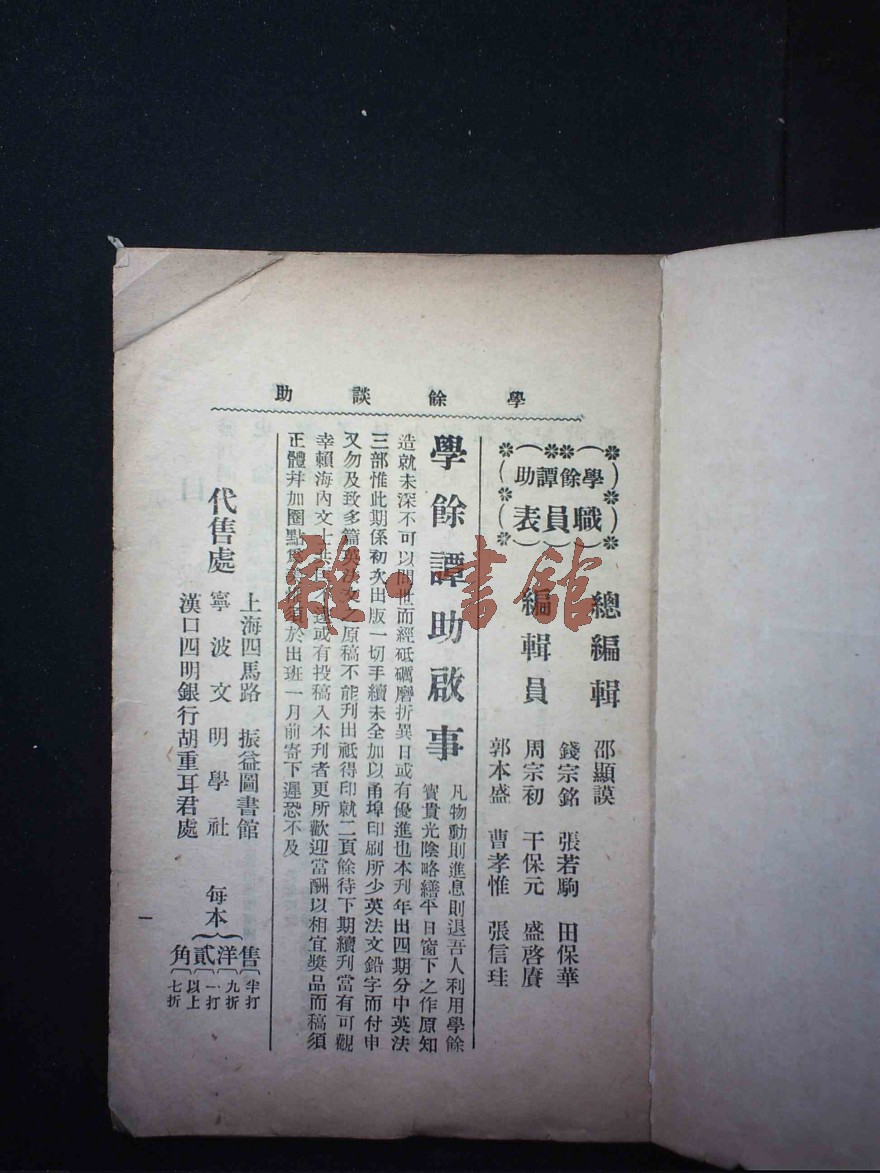 學餘談助
學餘譚助
職員表
總編輯 邵顯謨
編輯員
錢宗銘 張若駒 田保華
周宗初 干保元 盛啓賡
郭本盛 曹孝惟 張信珪
學餘譚助啟事
凡物動則進息則退吾人利用學餘
寶貴光陰略繕平日窗下之作原知
造就未深不可以問世而經砥礪磨折異日或有優進也本刊年出四期分中英法
三部惟此期係初次出版一切手續未全加以甬埠印刷所少英法文鉛字而付申
又勿及致多篇英法文之原稿不能刊出祇得印就二頁餘待下期續刊當有可觀
幸賴海內文士共 或有投稿入本刊者更所歡迎當酬以相宜獎品而稿須
正體幷加圈點 須於出班一月前寄下遲恐不及
代售處
上海四馬路 振益圖書館
寧波文明學社
漢口四明銀行胡重耳君處
每本
售洋貳角
半打九折
一打以上七折
一
雜·書館